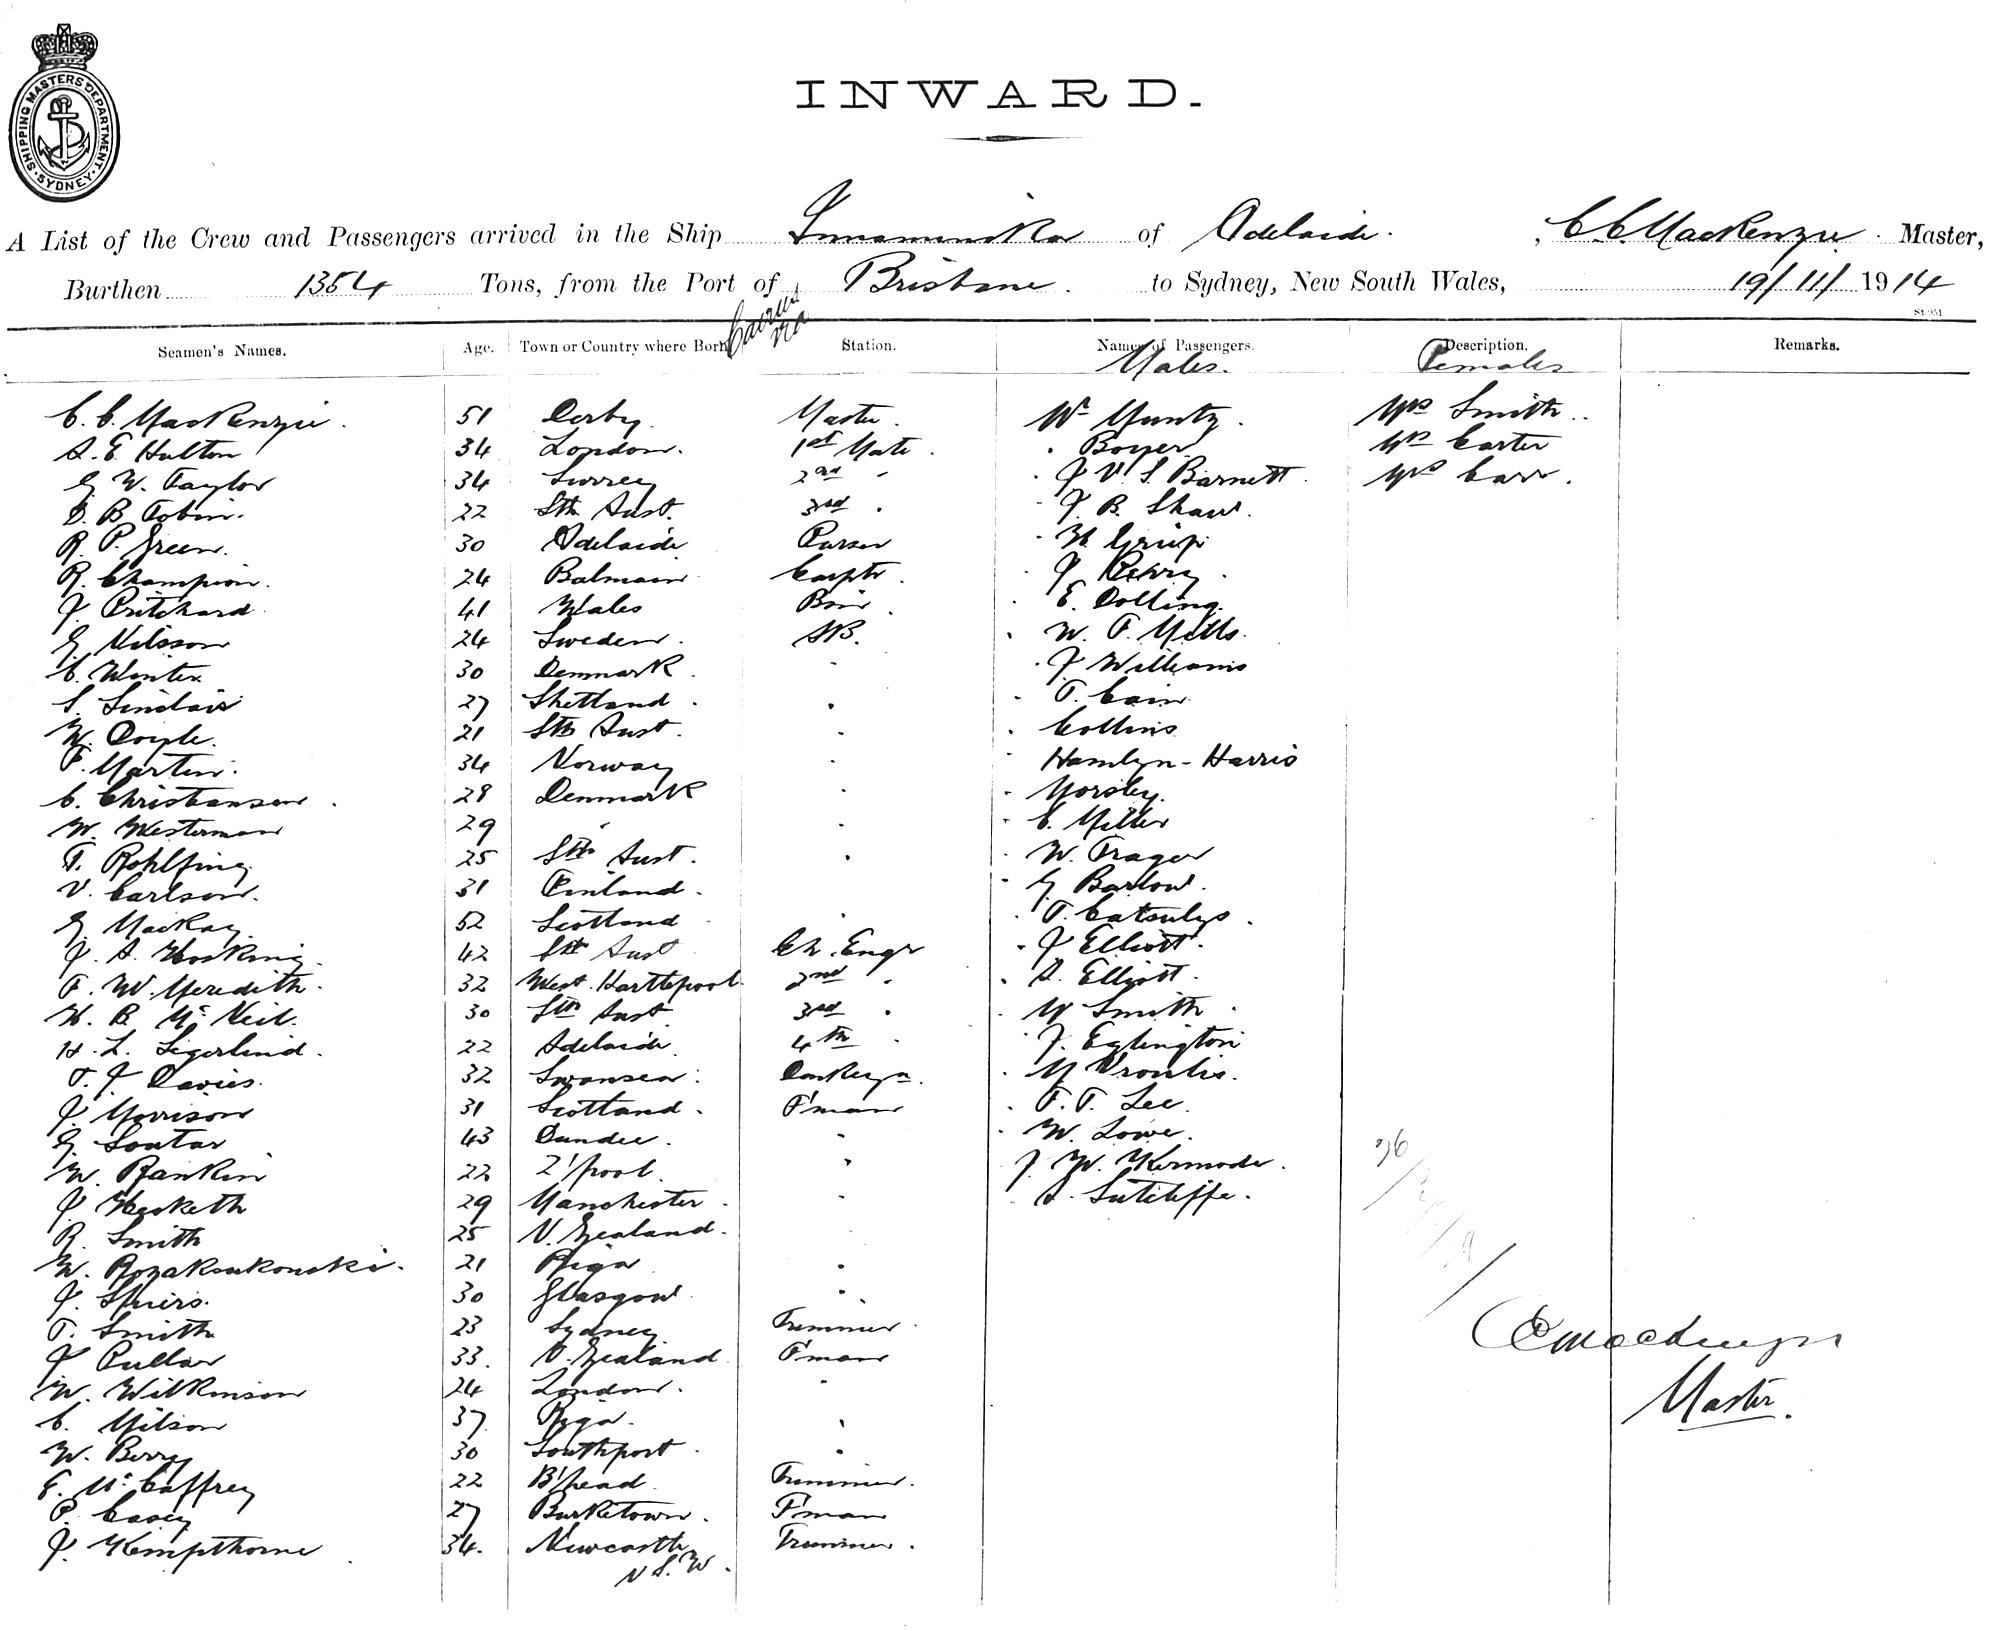 SHIPPING MASTERS DEPARTMENT. SYDNEY.
INWARD.
A List of the Crew and Passengers arrived in the Ship Innamincka of Adelaide. , C. C. MacKenzie. Master,
Burthen 1354 Tons, from the Port of Brisbane. to Sydney, New South Wales, 19/11/1914
Cairns via
Seamen's Names. Age. Town or Country where Born Station. Names of Passengers. Description. Remarks.
Males. Females
C. C. MacKenzie. 51 Derby. Master. Mr Muntz. Mrs Smith..
A. E. Hulton 34 London. 1st Mate. " Boyer. Mrs Carter
G W. Taylor 34 Surrey 2nd " " J V. S. Barnett. Mrs Carr.
D. B. Tobin. 22 Sth Aust. 3rd " " J. B. Shaw.
R. P. Green. 30 Adelaide Purser " H. Grup
R. Champion. 24 Balmain Carptr. " J Perry.
J. Pritchard 41 Wales Bsn. " E. Dolling.
G Nilsson 24 Sweden. AB. " W. F. Mills.
C. Winter. 30 Denmark. " " J Williams
S. Sinclair 27 Shetland. " " T. Cain
W. Doyle. 21 Sth Aust. " " Collins
F. Martin. 34 Norway " " Hamlyn-Harris
C. Christiansen. 28 Denmark " " Morsley.
W. Westerman 29 " " " C. Miller
T. Rohlfing. 25 Sth Aust. " " W. Trager
V. Carlson. 31 Finland. " " G Barlow.
G MacKay. 52 Scotland " " T. Catsulys.
J. A. Hosking. 42 Sth Aust Ch. Engr " J Elliott.
F. W. Meredith. 32 West. Hartlepool. 2nd " " A. Elliott.
H. B. McNeil. 30 Sth Aust 3rd " " M Smith.
H. L. Sigerlind. 22 Adelaide 4th " " J. Eglington
T. J Davies. 32 Swansea. Donkeyn. " M Vroulis.
J. Morrison 31 Scotland. F'man " F. T. Lee.
G. Soutar 43 Dundee. " " W. Lowe.
W. Rankin 22 L'pool. " J. W. Kermode.
J Hesketh 29 Manchester. " " A. Sutcliffe.
R. Smith 25 N. Zealand. "
W. 21 Riga "
J. Spiers. 30 Glasgow. "
T. Smith 23 Sydney Trimmer.
J Pullar 33. N. Zealand F'man
W. Wilkinson 24 London. "
C. Milson 37 Riga. "
W. Berry 30 Southport. "
E. McCaffrey 22 B'head. Trimmer.
P. Casey 27 Burketown. F'man
J. Kempthorne. 34. Newcastle Trimmer.
N S. W.
26
C C MacKenzie
Master.